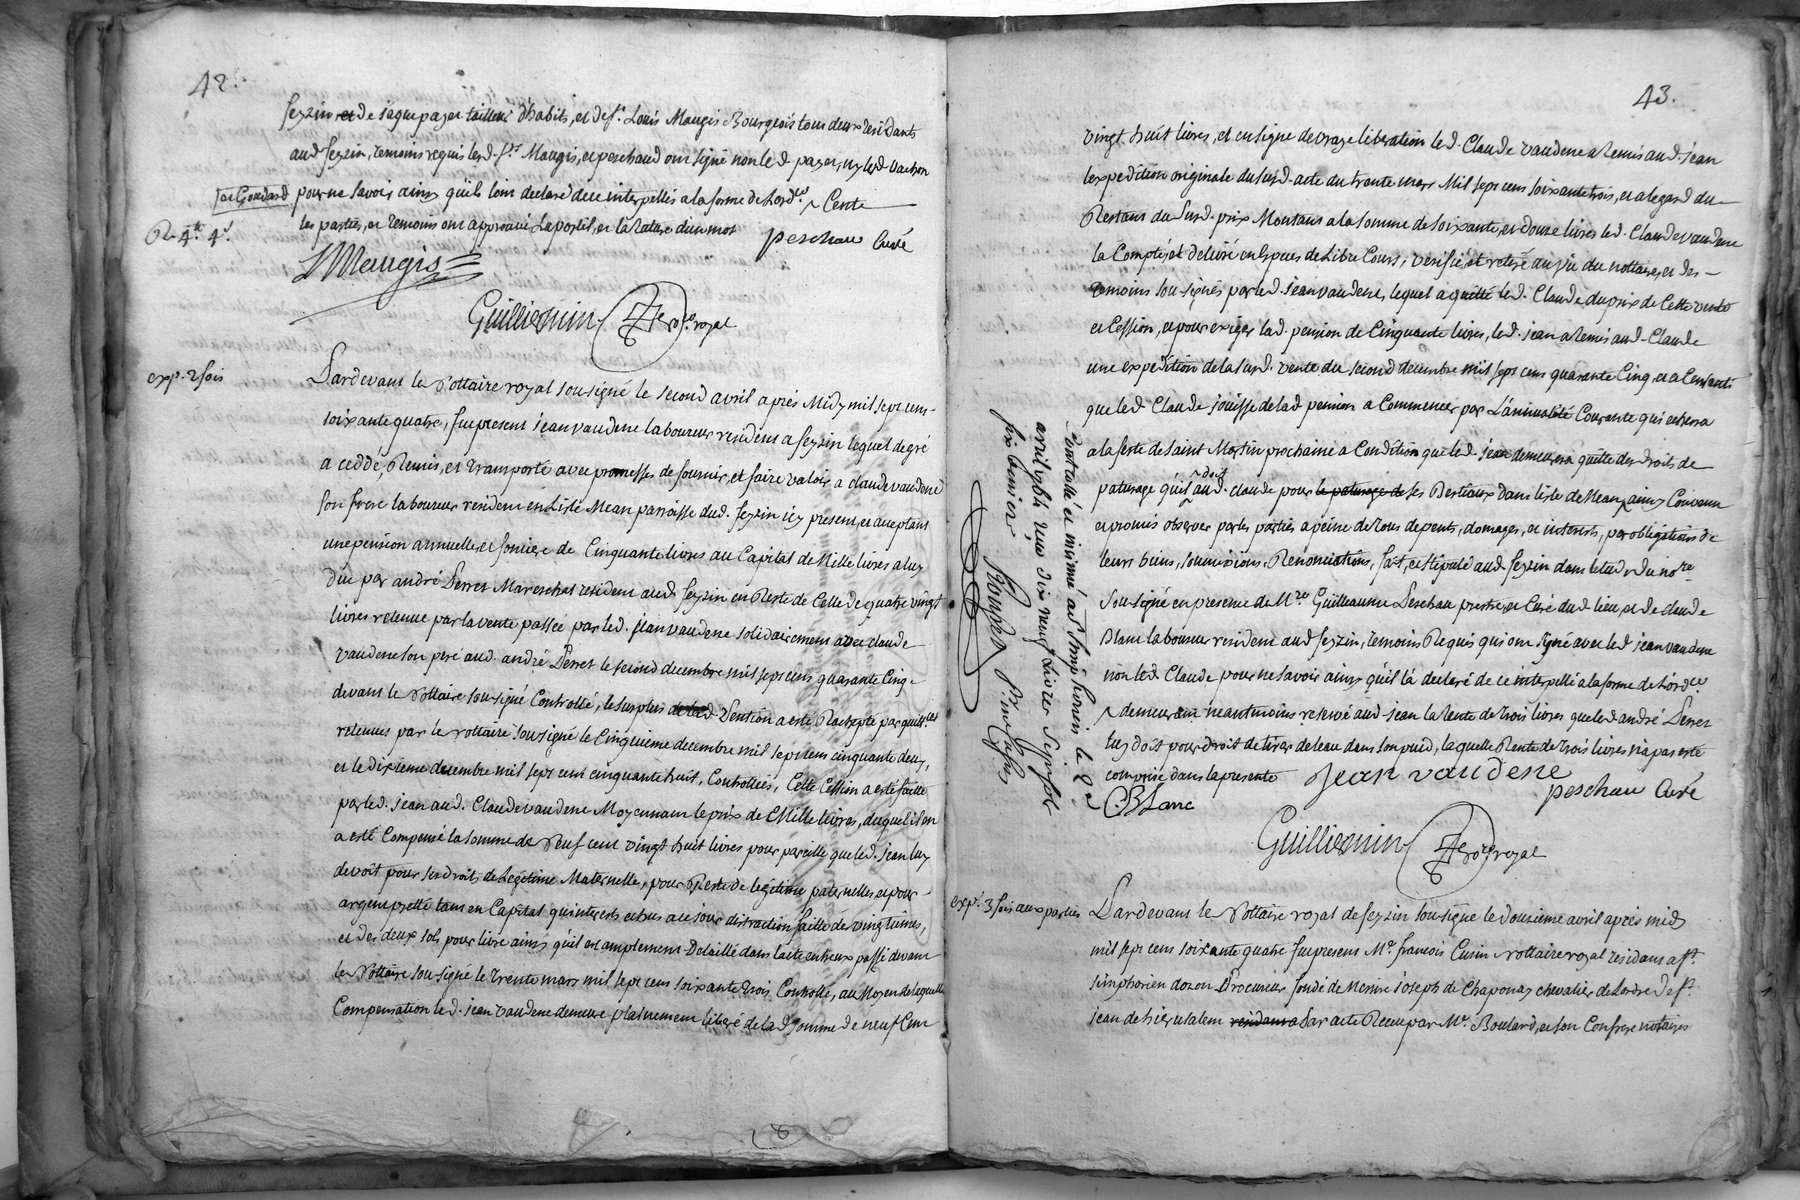 42.
feyzin et de jaque payet tailleur d'habits, et de sr. Louis Maugis Bourgeois tous deux residants
aud. feyzin, temoins requis lesd. srs Maugis, et peschaud ont signé non led. payet, ny led. vachon
et Goudard
pour ne savoir ainsy qu'ils l'ont declaré de ce interpellés a la forme de l'ordce. ~ Cente
R. 4tt 4s.
les parties, et temoins ont approuvé la postil, et la rature d'un mot
peschau Curé
LMaugis
Guilliermin Nore. royal
exp. 2 fois
Pardevant le Nottaire royal sousigné le second avril apres Midy mil sept cens
soixante quatre, fut present jean vaudene laboureur resident a feyzin lequel de gré
a ceddé, Remis, et transporté avec promesses de fournir, et faire valoir a claude vaudene
son frere laboureur resident en l'isle Mean parroisse dud. feyzin icy present, et acceptant
une pension annuelle, et fonciere de Cinquante livres au Capital de Mille livres a luy
düe par andré Perret Mareschal resident aud. feyzin en Reste de Celle de quatre vingt
livres retenue par la vente passée par led. jean vaudene solidairement avec claude
vaudene son pere aud. andré Perret le second decembre mil sept cens quarante Cinq
devant le Nottaire sousigné Controllé, le surplus de lad. Pention a esté Rachepté par quittces
retenues par le nottaire sousigné le Cinquieme decembre mil sept cens cinquante deux,
et le dixieme decembre mil sept cens cinquante huit, Controllées, Cette Cession a esté faitte
par led. jean aud. Claude vaudene Moyennant le prix de Mille livres, duquel il en
a esté Compensé la somme de Neuf cent vingt huit livres pour pareille que led. jean luy
devoit pour ses droits de Legitime Maternelle, pour Reste de legitime paternelle, et pour
argent pretté tant en Capital qu'interests echus a ce jour distraction faitte des vingtiemes,
et des deux sols pour livre ainsy qu'il est amplement Detaillé dans l'acte entreux passé devant
le Nottaire sousigné le trente mars mil sept cens soixante trois, Controllé, au Moyen de laquelle
Compensation led. jean vaudene demeure plainement liberé de lad. somme de neuf Cent
43.
vingt huit livres, et en signe de vraye liberation led. Claude vaudene a Remis aud. jean
l'expedition originale du susd. acte du trente mars Mil sept cens soixante trois, et a l'egard du
Restant du susd. prix Montant a la somme de soixante, et douze livres led. Claude vaudene
la Compté, et delivré en Espéces de Libre Cours, verifié, et retiré au vu du nottaire, et des
temoins sousignés par led. jean vaudene, lequel a quitté led. Claude du prix de Cette vente
et Cession, et pour exiger lad. pension de Cinquante livres, led. jean a remis aud. Claude
une expedition de la susd. vente du second decembre mil sept cens quarante Cinq, et a Consenti
que led. Claude jouisse de lad. pension a Commencer par L'annualité Courante qui echerra
a la feste de Saint Martin prochaine a Condition que led. jean demeurera quitte des droits de
paturage qu'il doit aud. claude pour le paturage de ses Bestiaux dans l'isle de Mean, ainsy Convenu
et promis observer par les parties a peine de tous depents, domages, et interests, par obligations de
leurs biens, soumissions, Renonciations, fait, et stipulé aud. feyzin dans letude du nore.
Sousigné en presence de Mre Guilleaume Peschau prestre, et Curé dud. lieu, et de claude
Blanc laboureur resident aud. feyzin, temoins Requis qui ont signé avec led. jean vaudene
non led. Claude pour ne savoir ainsy qu'il la declaré de ce interpellé a la forme de l'ordce.
~ demeurant neantmoins reservé aud. jean la rente de trois livres que led. andré Perret
luy doit pour droit de tirer de leau dans son puid, la quelle Rente de trois livres n'a pas esté
comprise dans la presente
Jean vaudene
peschau Curé
C. Blanc
Guilliermin Nore. royal
Controllé et insinué a st. simphorien le 8e
avril 1764 reçu dix neuf livres sept sols
six deniers
exp. 3 fois aux parties
Pardevant le Nottaire royal de feyzin sousigné le douzieme avril apres midy
mil sept cens soixante quatre fut present Me. françois Cusin nottaire royal residant a st.
simphorien dozon Procureur fondé de Messire joseph de Chaponay chevalier de Lordre de st.
jean de hierusalem residant a Par acte Receu par Me. Boulard, et son Confrere notaires